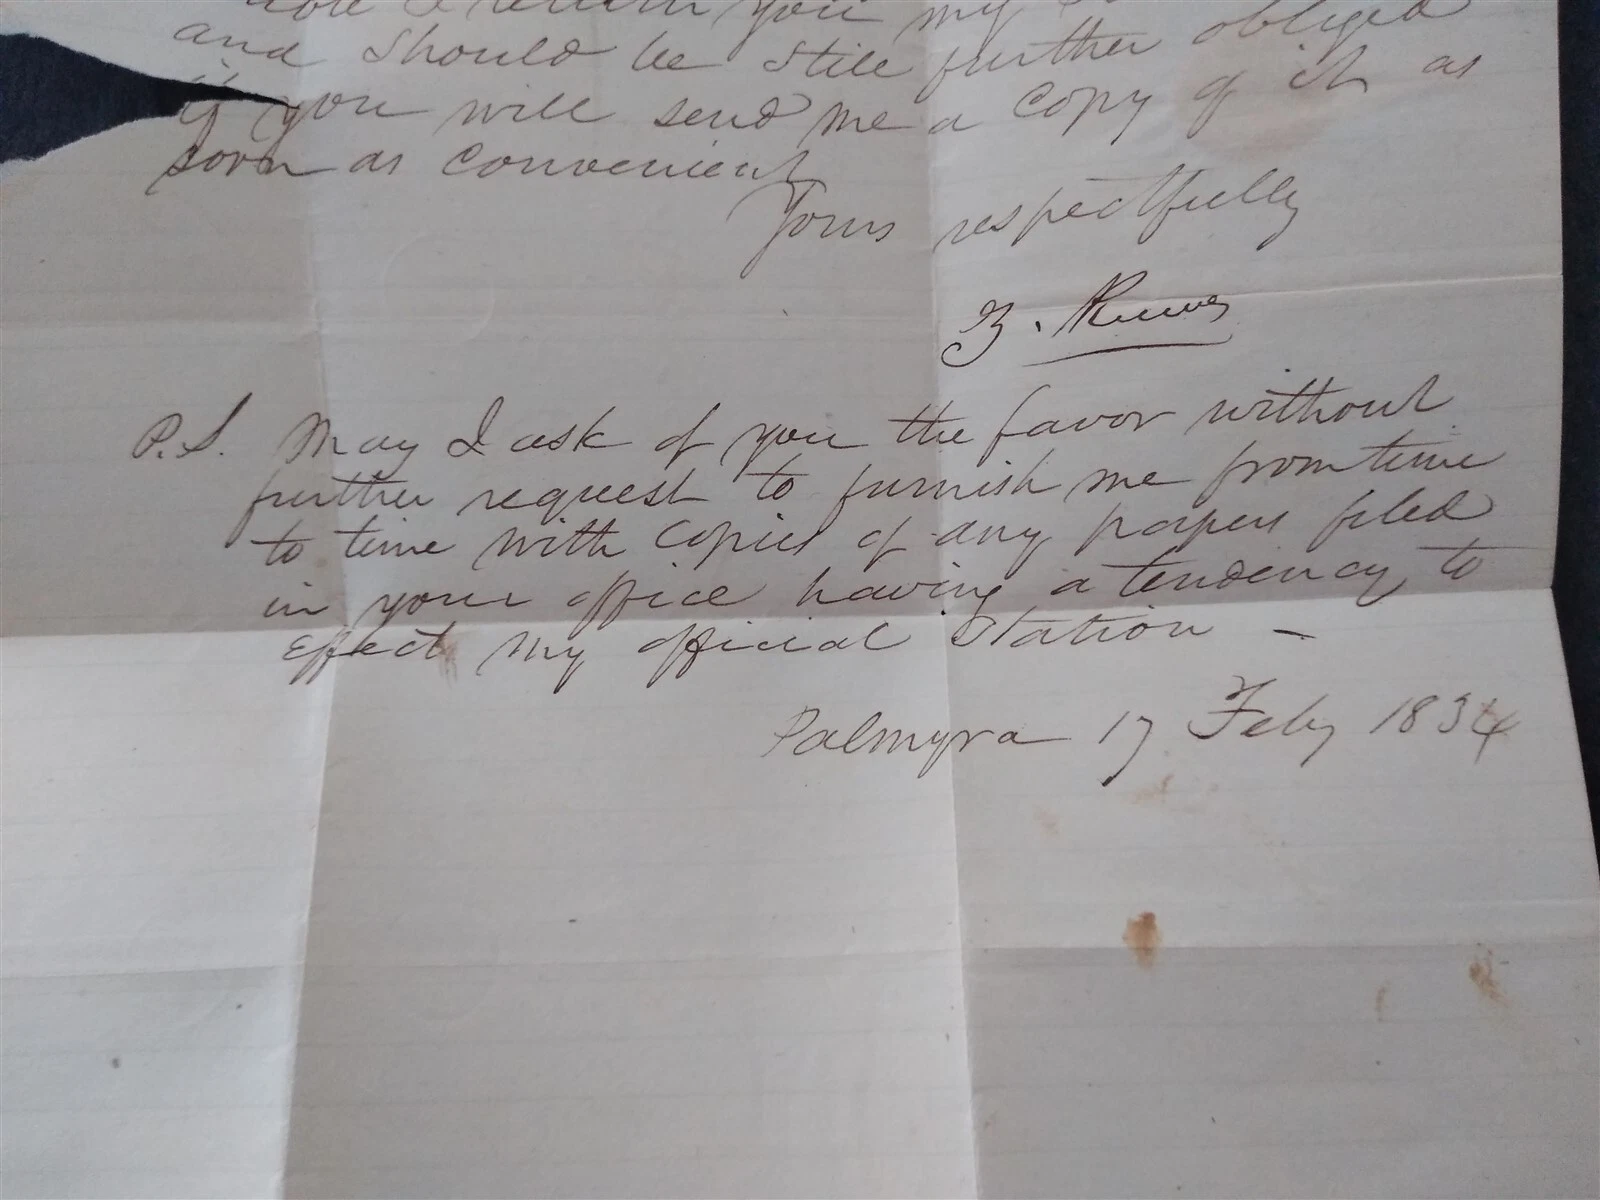 note I return you my
and should be still further obliged
if you will send me a copy of it as
soon as convenient
Yours respectfully
P.S. May I ask of you the favor without
further request to furnish me from time
to time with Copies of any papers filed
in your office having a tendency to
effect my official Station –
Palmyra 17 Feby 1834